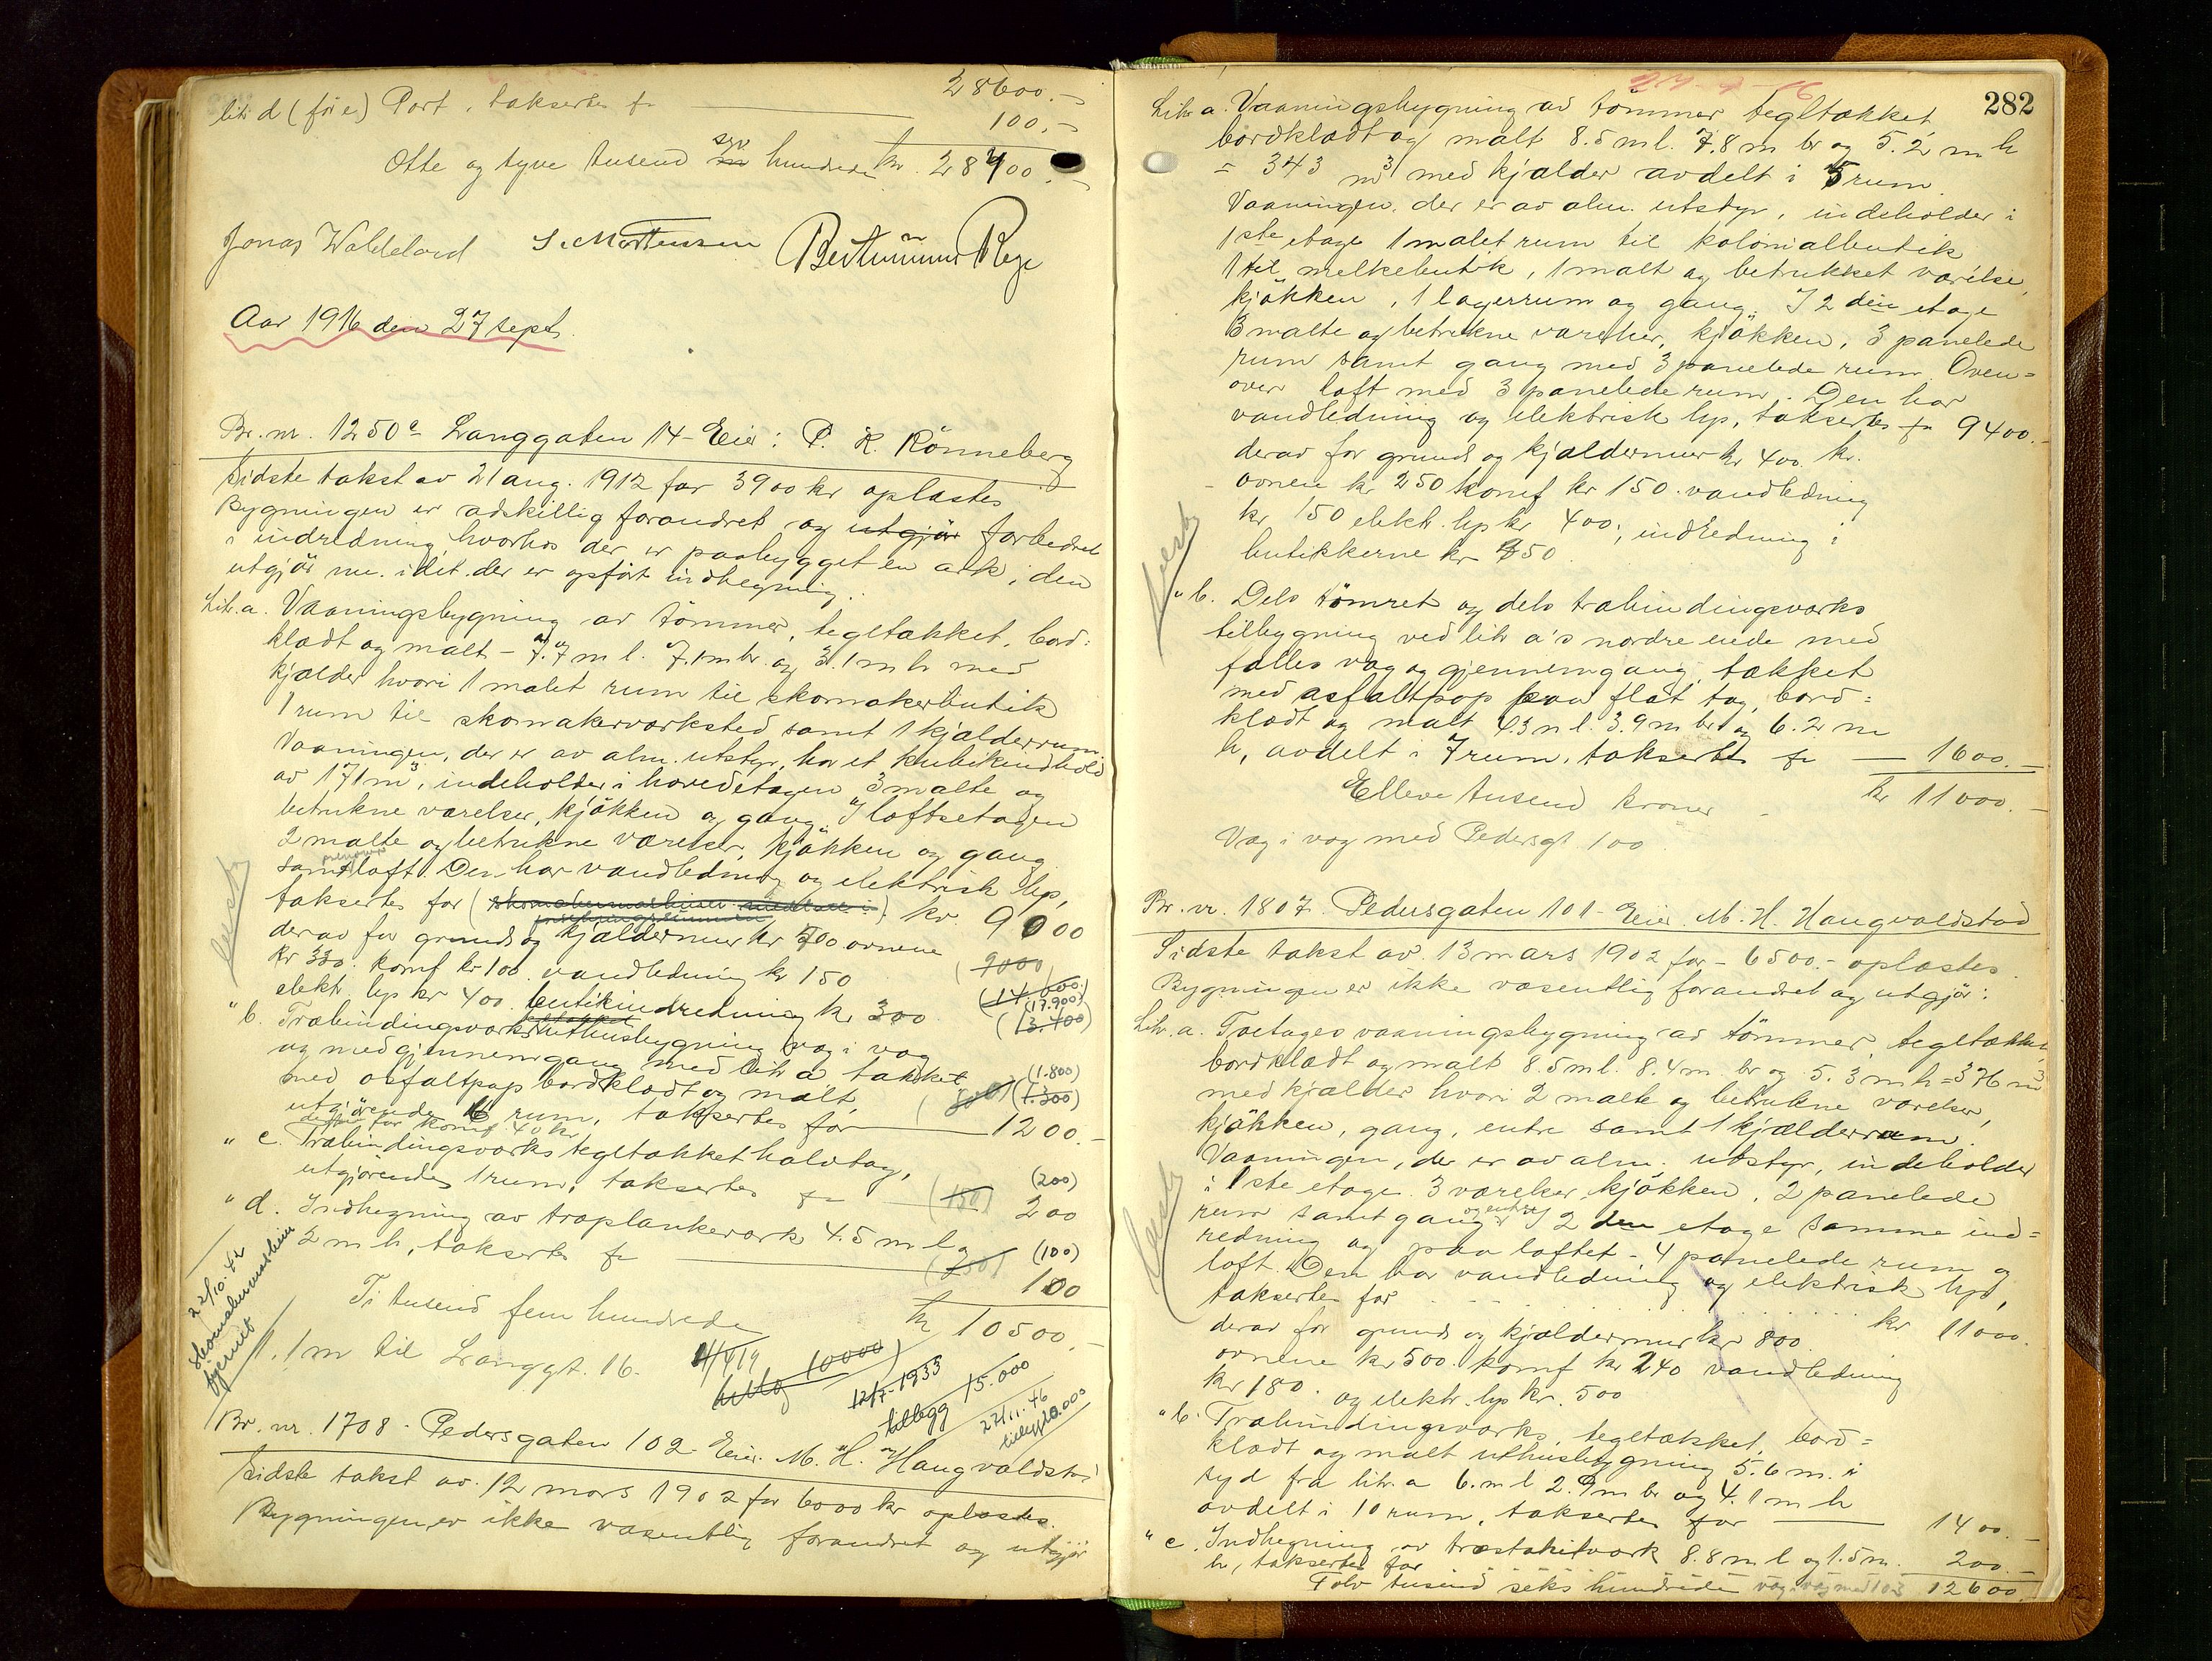 28600.-
litr d (för e) Port, taksertes fr 100.-
Otte og tyve tusend syv hundrede kr. 28700.-
Jonas Waldeland S. Mortensen Rege
Aar 1916 den 27 sept.
Br. nr. 1250c Langgaten 14 - Eier: P. R. Rönneberg
Sidste takst av 21 aug. 1912 for 3900 kr oplæstes
Bygningen er adskillig forandret og utgjör forbedret
i indredning, hvorhos der er paabygget en ark; den
utgjör nu, idet der er opfört indhegning:
Litr. a. Vaaningsbygning av tömmer, tegltækket, bord=
klædt og malt - 7.7 m l. 7.1 m br. og 3.1 m h med
kjælder hvori 1 malet rum til skomakerbutik
1 rum til skomakerværksted samt 1 kjælderrum.
Vaaningen, der er av alm. utstyr, har et kubikindhold
av 171 m³, indeholder i hovedetagen 3 malte og
betrukne værelser, kjökken og gang. I loftsetagen
2 malte og betrukne værelser, kjökken og gang
samt loft. Den har vandledning og elektrisk lys,
taksertes for (skomakermaskiner medtat i) kr. 9000
derav for grund og kjældermur kr 700 ovnene
kr 330. komf kr 100 vandledning kr 150 (9000)
elekt. lys kr 400 butikindredning kr 300 (14.600) (17.900) (13.400)
" b. Træbindingsværks uthusbygning væg i væg
og med gjennemgang med litr a tækket
med asfaltpap bordklædt og malt, (1.800)
utgjörende 6 rum, taksertes for 1200.- (1.300)
derav for komf 40 kr
" c. Træbindingsværks tegltækket halvtag,
utgjörende 1 rum, taksertes fr (150) 200 (200)
" d. Indhegning av træplankeværk 4.5 m l og
2 m h, taksertes fr 100 (100)
Ti tusend fem hundrede kr 10500.-
22/10.42
skomakermaskin
fjernet
1.1 m til Langgt. 16. 11/4 19
tillæg 10000)
12/7-1933
tillegg 15.000
27/11.46
tillegg 20.000
Br. nr. 1708. Pedersgaten 102. Eier. M. H. Haugvaldstad
Sidste takst av. 12 mars 1902 for 6000 kr oplæstes.
Bygningen er ikke væsentlig forandret og utgjör
27-9-16
282
Litr a. Vaaningsbygning av tömmer tegltækket,
bordklædt og malt 8.5 m l. 7.8 m br og 5.2 m h
= 343 m³ med kjælder avdelt i 5 rum.
Vaaningen, der er av alm. utstyr, indeholder i
1ste etage 1 malet rum til kolonialbutik
1 til melkebutik, 1 malt og betrukket værelse,
kjökken, 1 lagerrum og gang. I 2den etage
3 malte og betrukne værelser, kjökken, 3 panelede
rum samt gang med 3 panelede rum. Oven=
over loft med 3 panelede rum. Den har
vandledning og elektrisk lys, taksertes fr 9400.-
derav for grund og kjældermur kr 400. kr.
ovnene kr 250 komf kr 150. vandledning
kr 150 elekt. lys kr 400; indredning i
butikkerne kr 350.
" b. Dels tömret og dels træbindingsværks
tilbygning ved litr a's nordre ende med
fælles væg og gjennemgang, tækket
med asfaltpap paa flat tag, bord=
klædt og malt 4.3 m l. 3.9 m br og 6.2 m
h, avdelt i 7 rum, taksertes fr 1600.-
Elleve tusend kroner kr 11000.-
Væg i væg med Pedersgt 100
Br. nr. 1807. Pedersgaten 101 - Eier. M. H. Haugvaldstad
Sidste takst av. 13 mars 1902 for - 6500.- oplæstes.
Bygningen er ikke væsentlig forandret og utgjör:
Litr. a. Toetages vaaningsbygning av tömmer, tegltækket,
bordklædt og malt 8.5 m l. 8.4 m. br og 5.3 m h = 376 m³
med kjælder hvori 2 malte og betrukne værelser,
kjökken, gang, entre samt 1 kjælderrum.
Vaaningen, der er av alm. utstyr, indeholder
i 1ste etage 3 værelser, kjökken, 2 panelede
rum samt gang og entre. I 2den etage samme ind=
redning og paa loftet - 4 panelede rum og
loft. Den har vandledning og elektrisk lys,
taksertes for kr 11000.
derav for grund og kjældermur kr 800.
ovnene kr 500. komf kr 240 vandledning
kr 180. og elektr. lys kr. 500
" b. Træbindingsværks, tegltækket, bord=
klædt og malt uthusbygning 5.6 m. i
syd fra litr. a 6. m l 2.9 m br og 4.1 m h
avdelt i 10 rum, taksertes for 1400.-
" c. Indhegning av træstakitværk 8.8 m l og 1.5 m.
h, taksertes for 200.-
Tolv tusend seks hundrede væg i væg med 103 12600.-